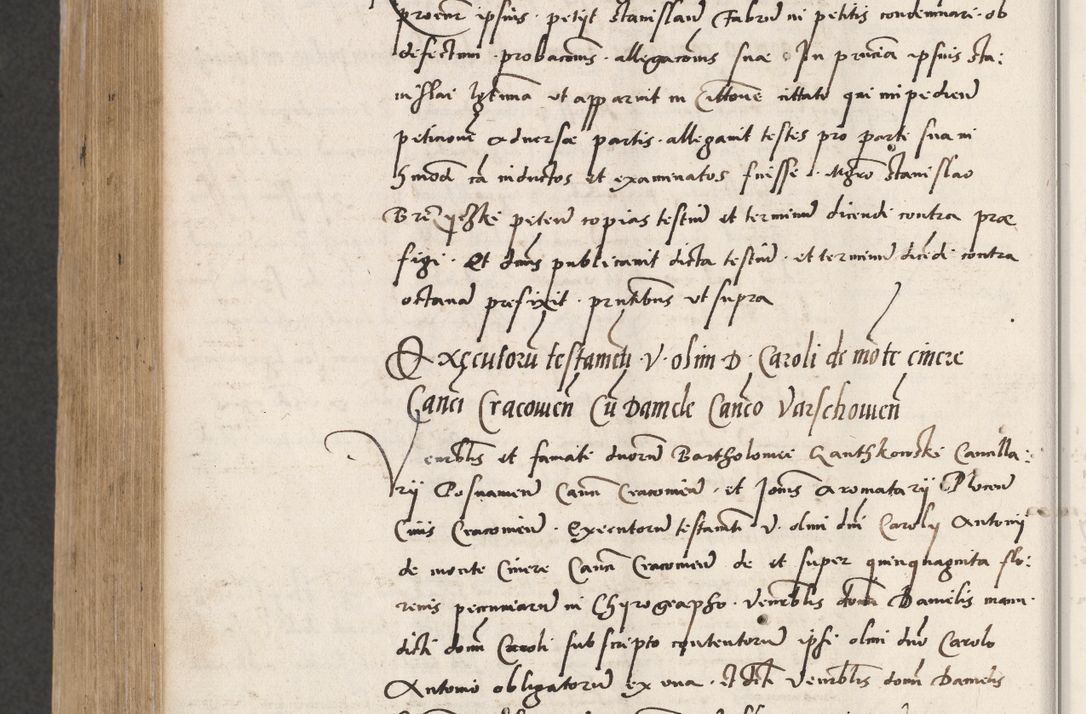 ipsius petijt Stanislaum Fabrum in petitis condemnari ob
defectum probacionis allegacionis suae In presencia ipsius Sta:
nislai legittima ut apparuit in Cittatione cittati qui impediend
peticionem adversae partis allegavit testes pro parte sua in
hmodi ca inductos et examinatos fuisse Mgro Stanislao
petend copias testium et terminum dicendi contra prae
figi Et dnus publicavit dicta testium et terminum dicendi contra
octavam prefixit prntibus ut supra
Executorum testamenti V olim D Caroli de monte cinere
Canci Cracovien Cum Daniele Canco Varschovien
Venerablis et famati duorum Bartholomei Ganthkowski Cancilla:
rij Posnanien Canci Cracovien et Joannis Aromatarij Plocen
Civis Cracovien Executorum testamenti V olim dni Carolij Antonij
de monte Cinere Canci Cracovien de et super quinquaginta flo:
renis pecuniarum in Chyrographo venerablis domini Danielis manu
dicti domini Caroli subscripto contentorum ipsi olim dno Carolo
Antonio obligatorum ex una Et dicti Venerablis domini Danielis